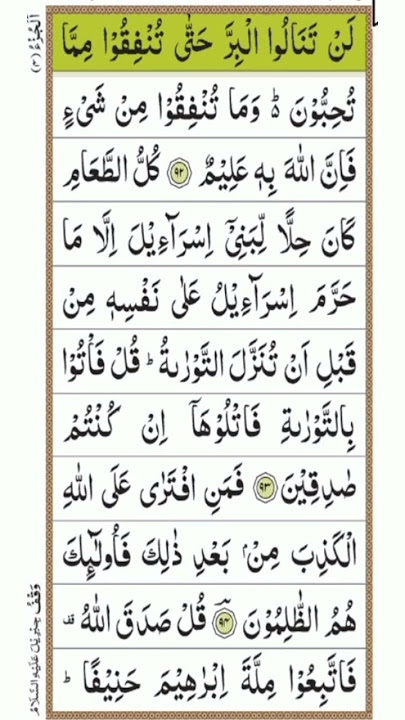 اَلْجُزْءُ (۳)
لَنْ تَنَالُوا الْبِرَّ حَتّٰى تُنْفِقُوْا مِمَّا
تُحِبُّوْنَ ؕ وَمَا تُنْفِقُوْا مِنْ شَىْءٍ
فَاِنَّ اللّٰهَ بِهٖ عَلِيْمٌ ۹۲ كُلُّ الطَّعَامِ
كَانَ حِلًّا لِّبَنِىْۤ اِسْرَآءِيْلَ اِلَّا مَا
حَرَّمَ اِسْرَآءِيْلُ عَلٰى نَفْسِهٖ مِنْ
قَبْلِ اَنْ تُنَزَّلَ التَّوْرٰىةُ ؕ قُلْ فَاْتُوْا
بِالتَّوْرٰىةِ فَاتْلُوْهَاۤ اِنْ كُنْتُمْ
صٰدِقِيْنَ ۹۳ فَمَنِ افْتَرٰى عَلَى اللّٰهِ
الْكَذِبَ مِنْۢ بَعْدِ ذٰلِكَ فَاُولٰٓئِكَ
هُمُ الظّٰلِمُوْنَ ۹۴ قُلْ صَدَقَ اللّٰهُ قف
فَاتَّبِعُوْا مِلَّةَ اِبْرٰهِيْمَ حَنِيْفًا ؕ
وَقْفُ جِبْرِيْلَ عَلَيْهِ السَّلَامُ